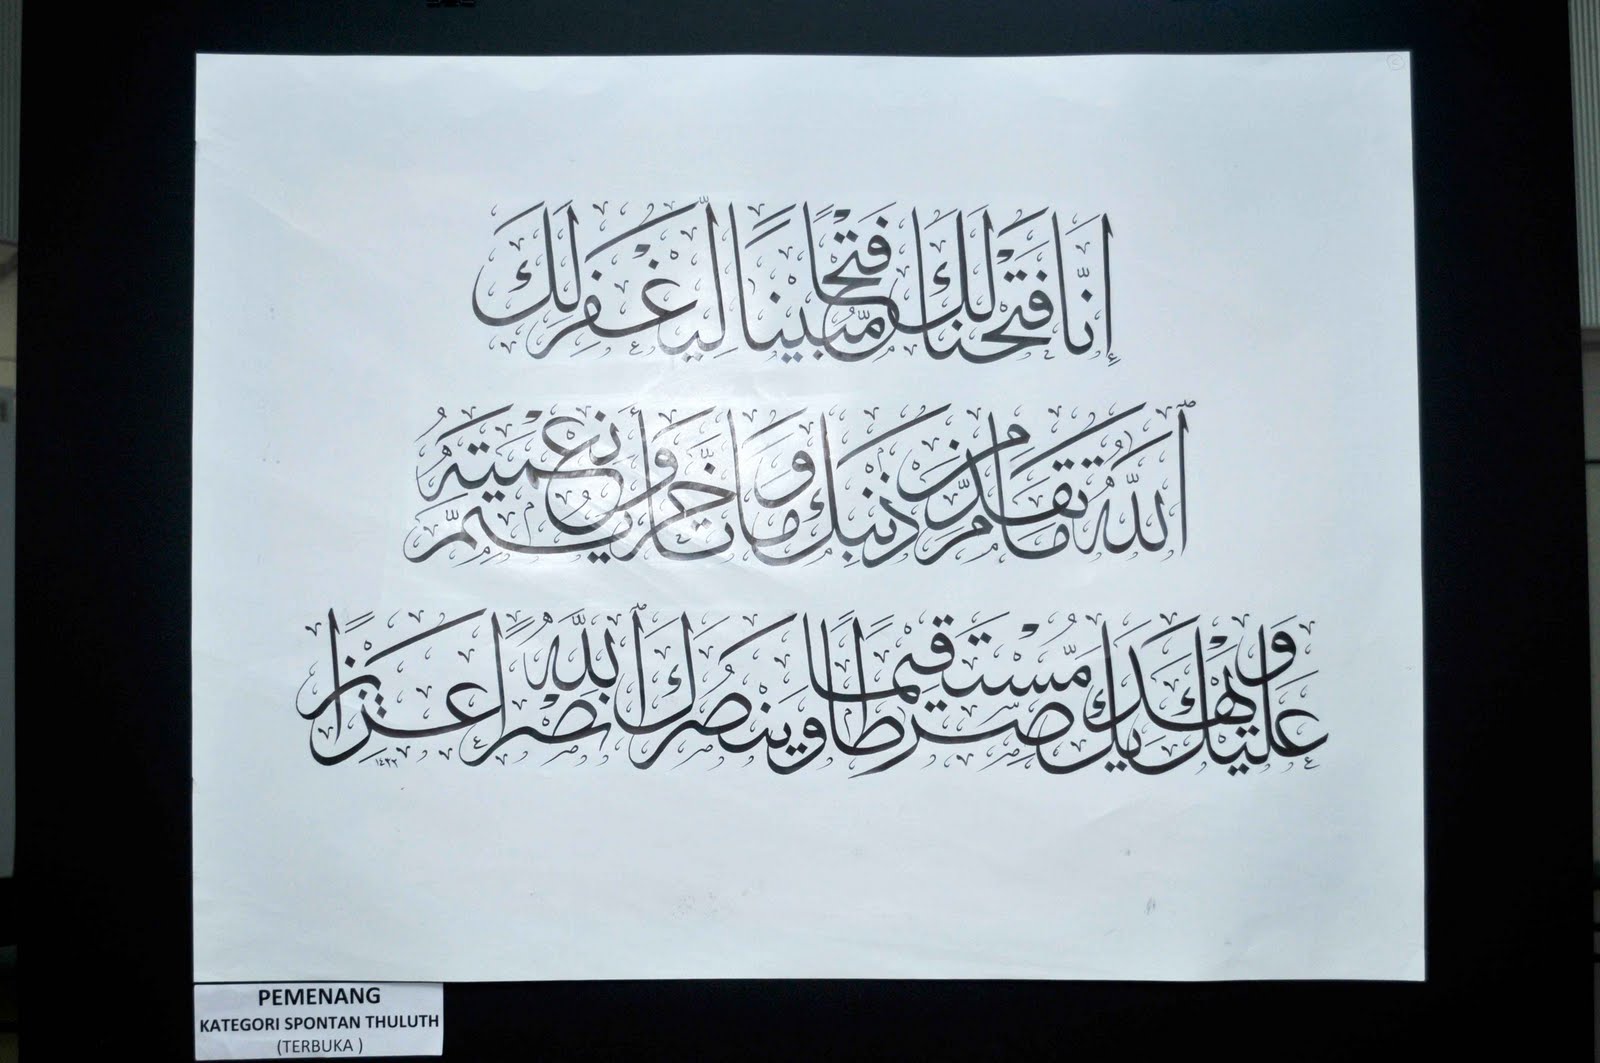 إِنَّا فَتَحْنَا لَكَ فَتْحًا مُّبِينًا لِّيَغْفِرَ لَكَ
ٱللَّهُ مَا تَقَدَّمَ مِن ذَنبِكَ وَمَا تَأَخَّرَ وَيُتِمَّ نِعْمَتَهُ
عَلَيْكَ وَيَهْدِيَكَ صِرَٰطًا مُّسْتَقِيمًا وَيَنصُرَكَ ٱللَّهُ نَصْرًا عَزِيزًا
١٤٣٢
PEMENANG
KATEGORI SPONTAN THULUTH
(TERBUKA )